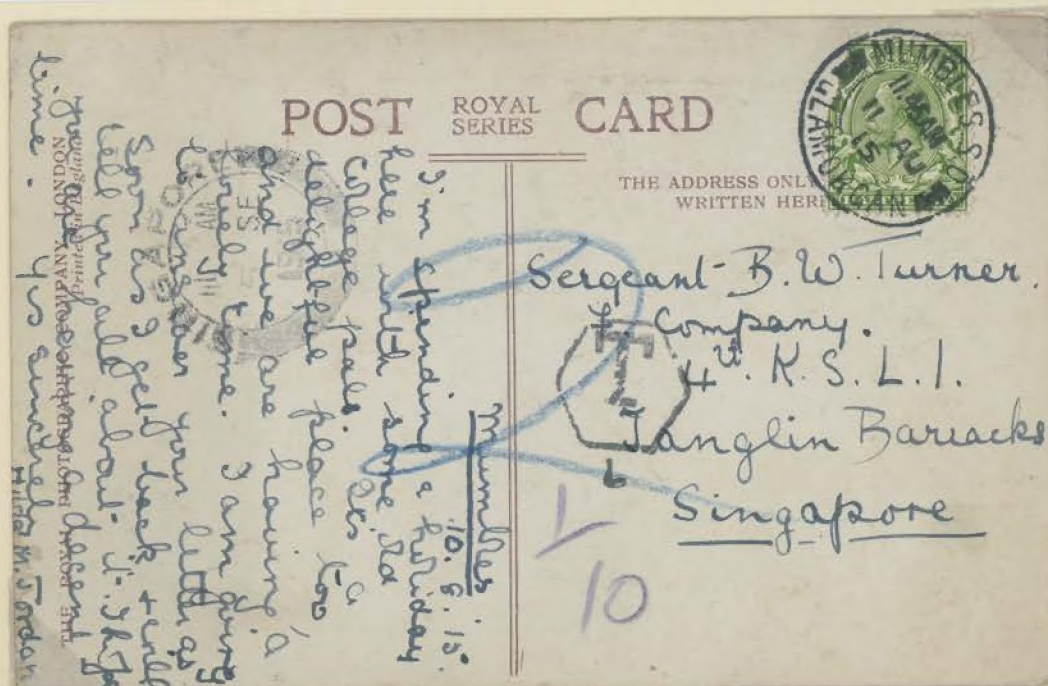 POST ROYAL SERIES CARD
THE ADDRESS ONLY
WRITTEN HERE
MUMBLES S.O.
11.45AM
11 AU
15
GLAMORGAN
Sergeant B. W. Turner.
Company.
4th. K. S. L. I.
Tanglin Barracks
Singapore
T
6
1/
10
Mumbles
10. 8. 15.
I'm spending a holiday
here with some old
College pals. Its a
delightful place too
and we are having a
lovely time. I am going
to answer your letter as
soon as I get back & will
tell you all about it.
you are a decent
time. Yrs sincerely
Hilda M. Jordan
SINGAPORE
AM
SE
1915
THE LONDON
Printed in England